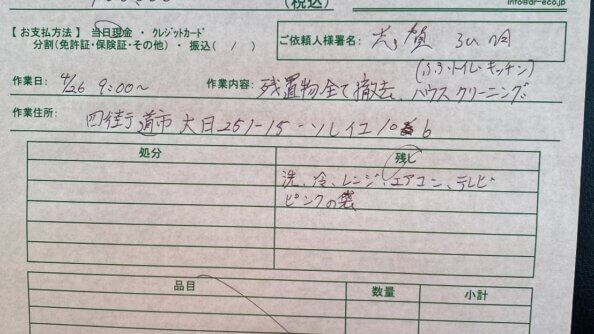 (税込)
info@dr-eco.jp
【お支払方法】当日現金・クレジットカード
分割(免許証・保険証・その他)・振込( / )
ご依頼人様署名:
(ふろ・トイレ・キッチン)
作業日: 4/26 9:00〜 作業内容: 残置物全て撤去、ハウスクリーニング
作業住所: 四街道市大日251-15-ソレイユ10 6
処分 残し
洗、冷、レンジ、エアコン、テレビ
ピンクの袋
品目 数量 小計